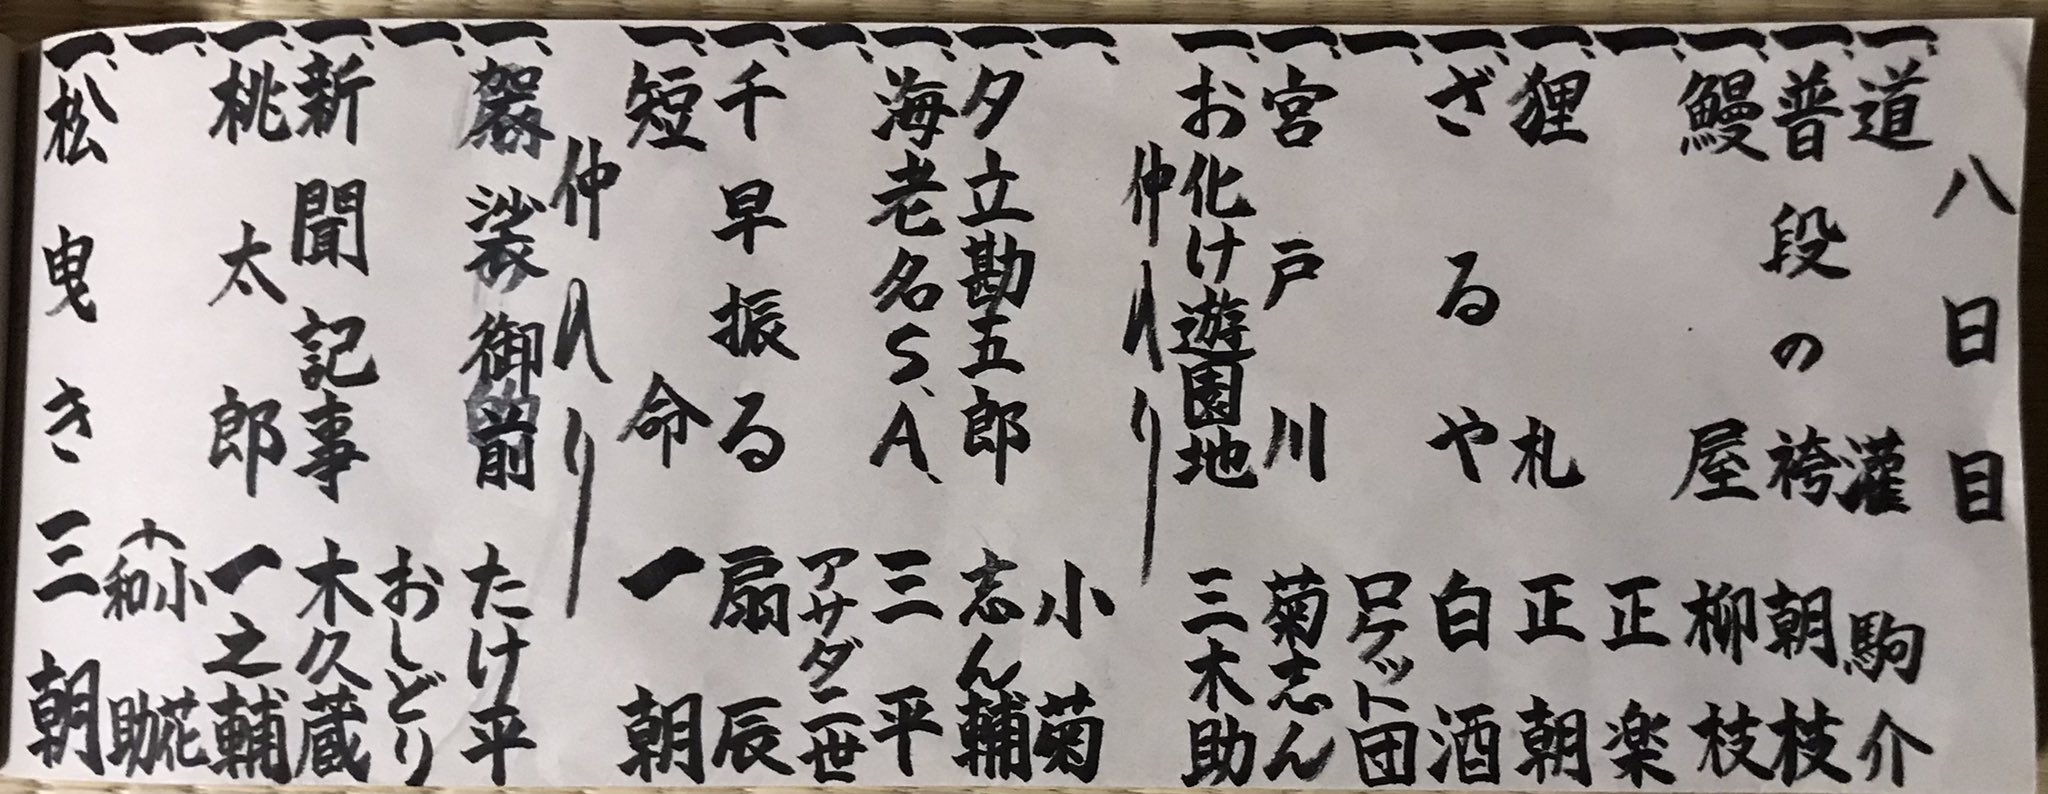 八日目
一、道灌 駒介
一、普段の袴 朝枝
一、鰻屋 柳枝
一、 正楽
一、狸札 正朝
一、ざるや 白酒
一、 ロケット団
一、宮戸川 菊志ん
一、お化け遊園地 三木助
仲入り
一、 小菊
一、夕立勘五郎 志ん輔
一、海老名S.A. 三平
一、 アサダ二世
一、千早振る 扇辰
一、短命 一朝
仲入り
一、袈裟御前 たけ平
一、 おしどり
一、新聞記事 木久蔵
一、桃太郎 一之輔
一、 小花
和助
一、松曳き 三朝